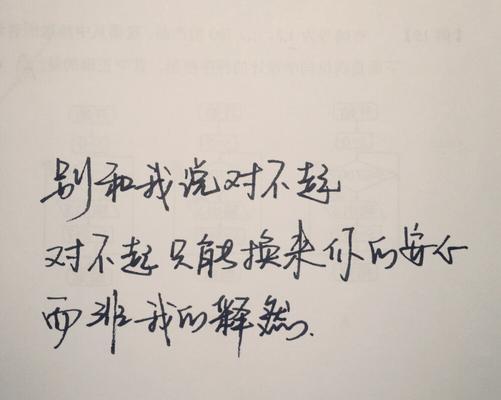 别和我说对不起
对不起只能换来你的安心
而非我的释然.